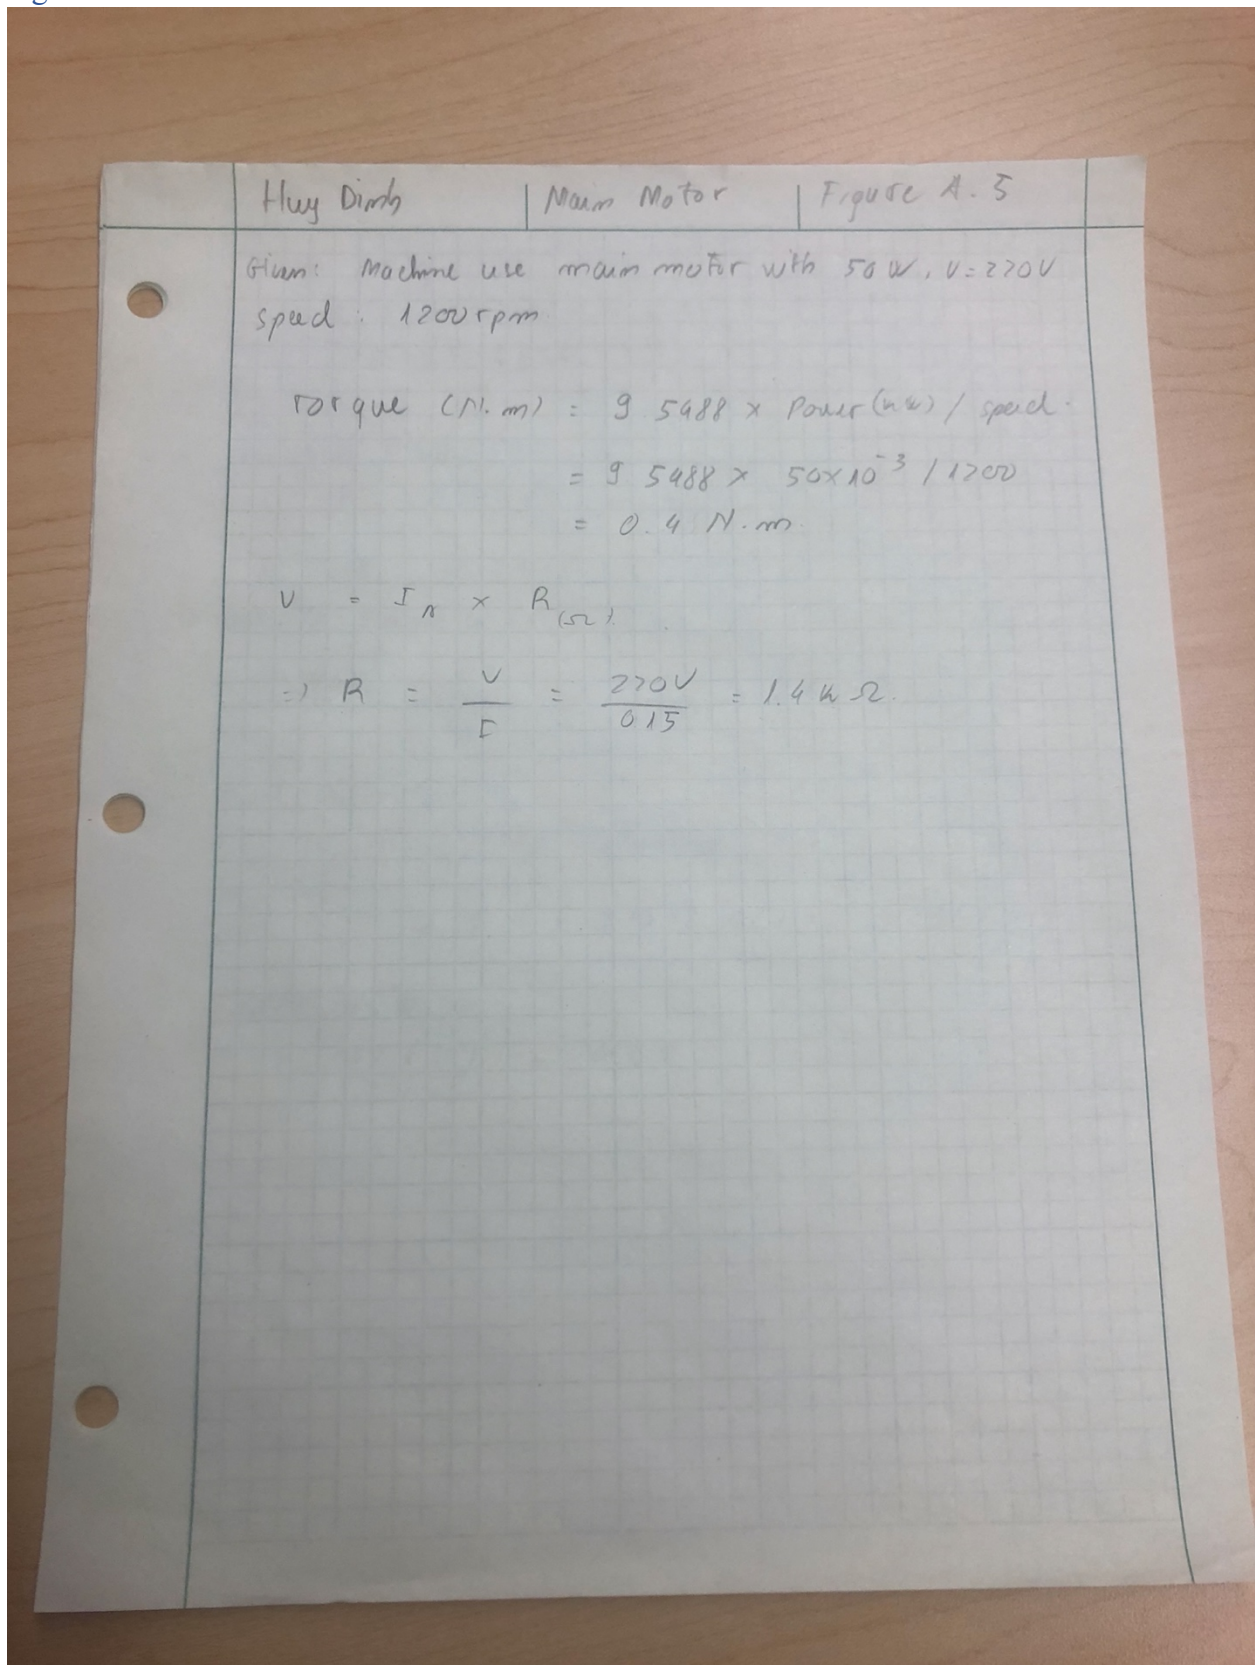 Huy Dinh | Main Motor | Figure A.5
Given: Machine use main motor with 50W, V=220V
speed: 1200rpm
Torque (N.m) = 9 5488 × Power(kw) / speed.
= 9 5488 × 50×10^-3 / 1200
= 0.4 N.m
V = I_A × R_(Ω).
=> R = V/I = 220V/0.15 = 1.4 k Ω.